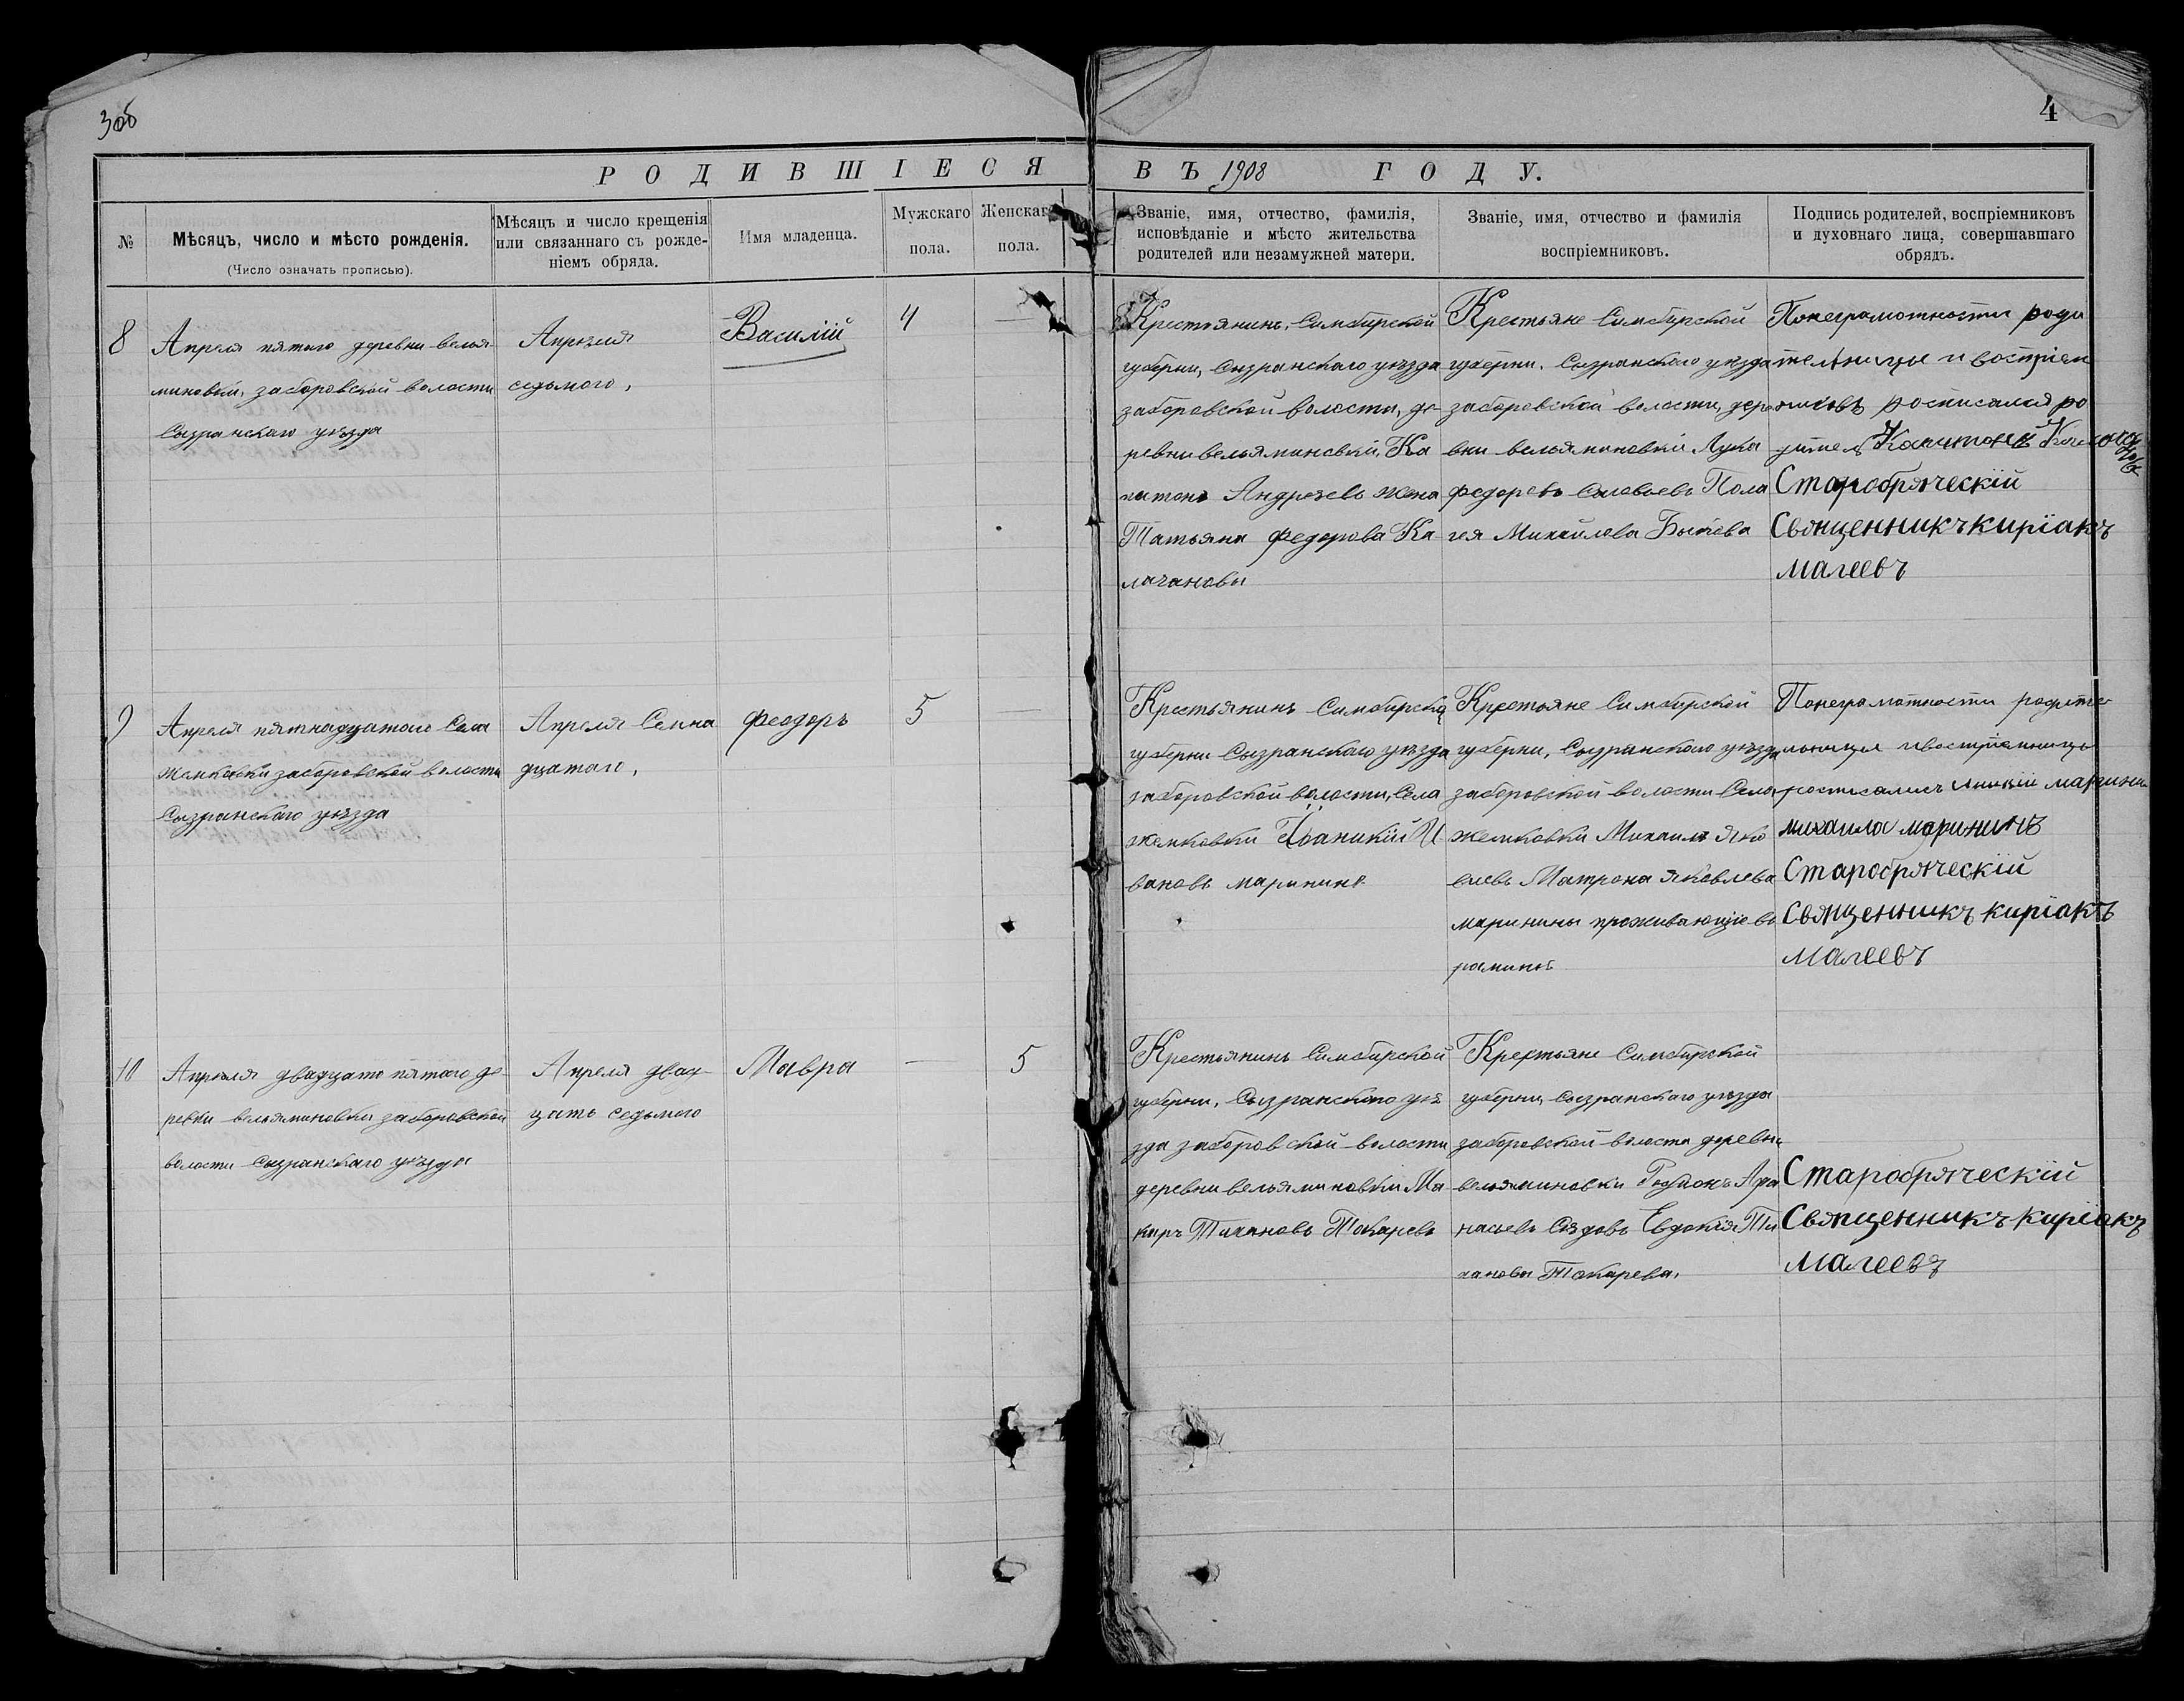 3об
4
РОДИВШІЕСЯ ВЪ 1908 ГОДУ.
№
Мѣсяцъ, число и мѣсто рожденія.
(Число означать прописью).
Мѣсяцъ и число крещенія
или связаннаго съ рожде-
ніемъ обряда.
Имя младенца.
Мужскаго
пола.
Женскаг
пола.
Званіе, имя, отчество, фамилія,
исповѣданіе и мѣсто жительства
родителей или незамужней матери.
Званіе, имя, отчество и фамилія
воспріемниковъ.
Подпись родителей, воспріемниковъ
и духовнаго лица, совершавшаго
обрядъ.
8
Апреля пятого деревни велья-
миновки, заборовской волости
Сызранскаго уѣзда
Апрѣля
седьмого,
Василій
4
—
Крестьянинъ, Симбирской
губерни, Сызранскаго уѣзда
заборовской волости, де-
ревни вельяминовки, Ка
питонъ Андреевъ жена
Татьяна Федорова Ка-
лачановы
Крестьяне Симбирской
губерни. Сызранскаго уѣзда
заборовской волости, дере
вни вельяминовки Лука
федоровъ Соловьевъ Пела
гея Михайлова Бычева
Понеграмотности роди
тельницы и воспріем
никовъ росписался ро
дитель Капитонъ
Старобряческій
Священникъ киріакъ
малеевъ
9
Апреля пятнадцатого Села
жемковки заборовской волости
Сызранскаго уѣзда
Апреля Семна
дцатого,
Феодоръ
5
—
Крестьянинъ Симбирской
губерни Сызранскаго уѣзда
заборовской волости, Села
жемковки Іоаникій И
вановъ маринин
Крестьяне Симбирской
губерни, Сызранскаго уѣзда
заборовской волости Села
жемковки Михаилъ Яко
влевъ Матрона Яковлева
маринины проживающіе въ
рамина
Понеграмотности родите
льницы ивоспріемницы
росписались маринин
михаила марининъ
Старобряческій
Священникъ киріакъ
малеевъ
10
Апрѣля двадцать пятого де-
ревни вельяминовки заборовской
волости Сызранскаго уѣзда
Апреля двад-
цать седьмого
Мавра
—
5
Крестьянинъ Симбирской
губерни, Сызранскаго уѣ
зда заборовской волости
деревни вельяминовки Ма-
каръ Тихановъ Токаревъ
Крестьяне Симбирской
губерни, Сызранскаго уѣзда
заборовской волости деревни
вельяминовки Родионъ Афа
насьевъ Сѣдовъ Евдокия Ти
ханова Токарева.
Старобряческій
Священникъ киріакъ
малеевъ